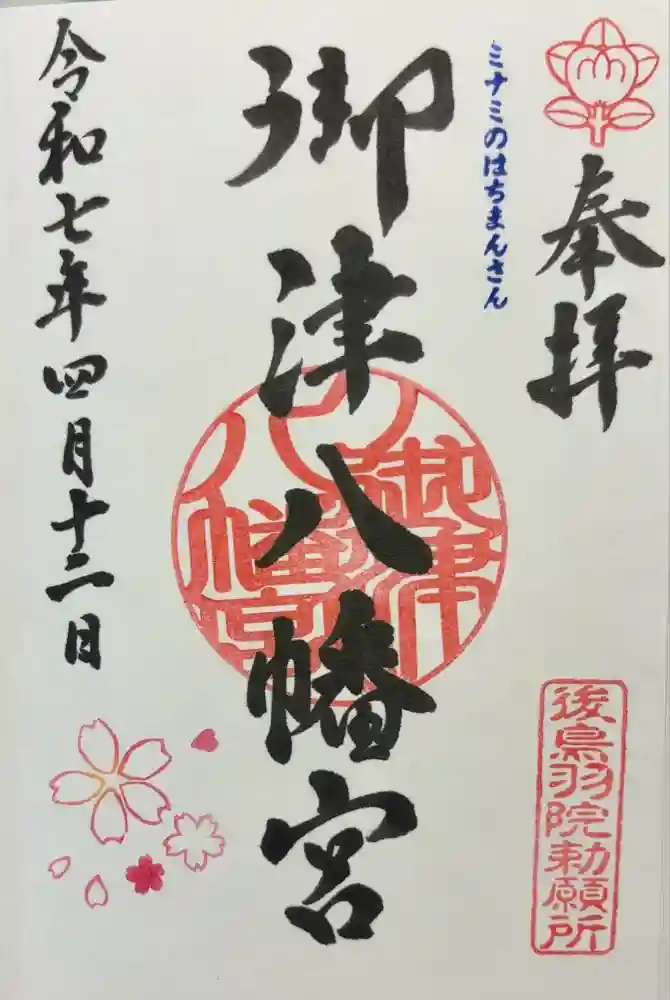 奉拝
ミナミのはちまんさん
御津八幡宮
令和七年四月十二日
御津
八幡宮
後鳥羽院勅願所